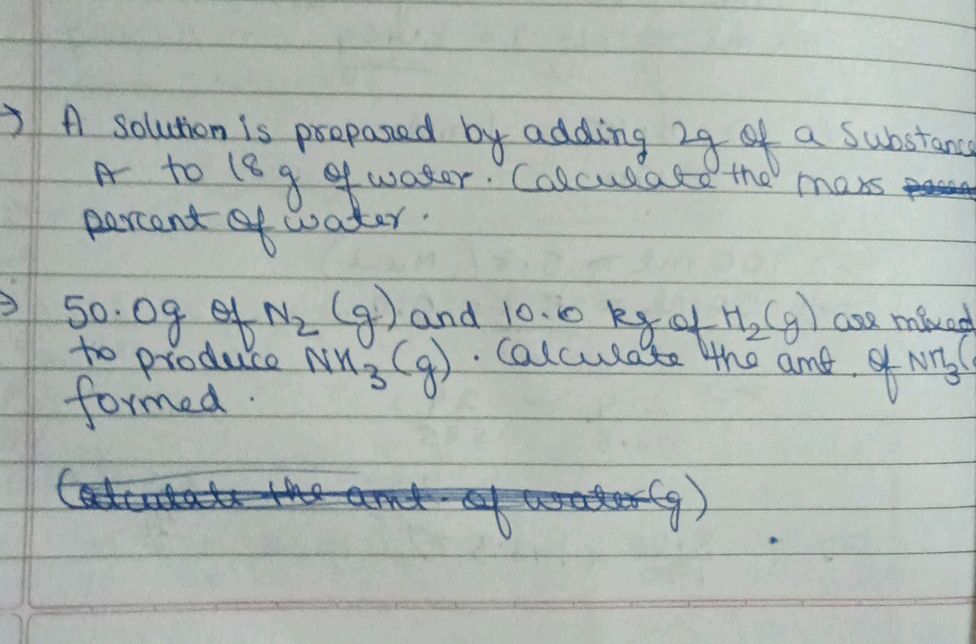 → A solution is prepared by adding 2g of a Substance
A to 18 g of water. Calculate the mass
percent of water.
→ 50.0g of N₂ (g) and 10.0 kg of H₂(g) are mixed
to produce NH₃(g). Calculate the amt. of NH₃(
formed.
Calculate the amt. of water(g)